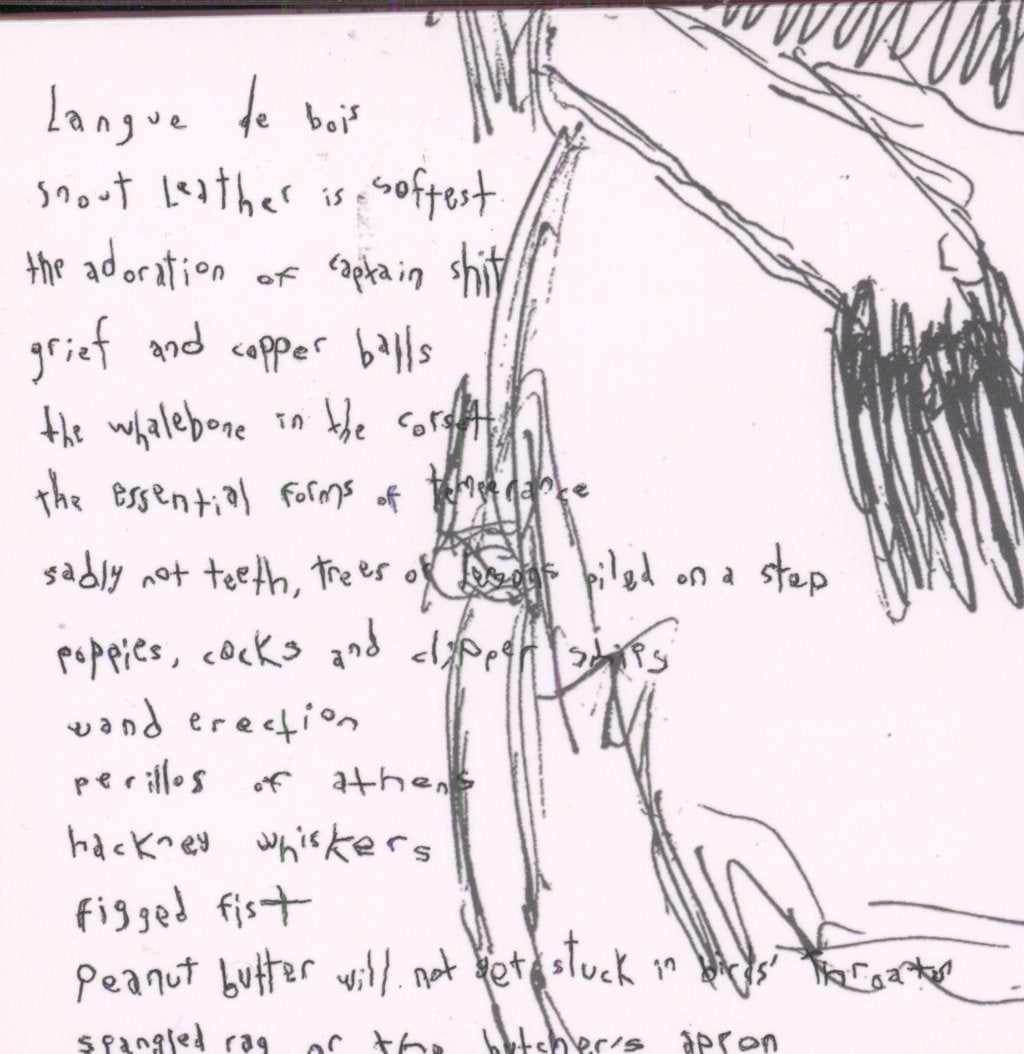 Langue de bois
snout leather is softest
the adoration of captain shit
grief and copper balls
the whalebone in the corset
the essential forms of temperance
sadly not teeth, trees or lemons piled on a step
poppies, cocks and clipper ships
wand erection
perillos of athens
hackney whiskers
figged fist
peanut butter will not get stuck in birds' throats
spangled rag or the butchers apron